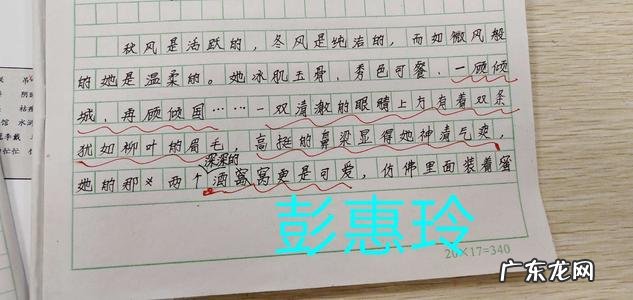 秋风是活跃的，冬风是纯洁的，而如微风般
的她是温柔的。她冰肌玉骨、秀色可餐、一顾倾
城、再顾倾国……一双清澈的眼睛上方有着双条
犹如柳叶的眉毛，高挺的鼻梁显得她神清气爽，
深深的
她的那两个酒窝窝更是可爱，仿佛里面装着蜜
彭惠玲
20×17=340
广东龙网